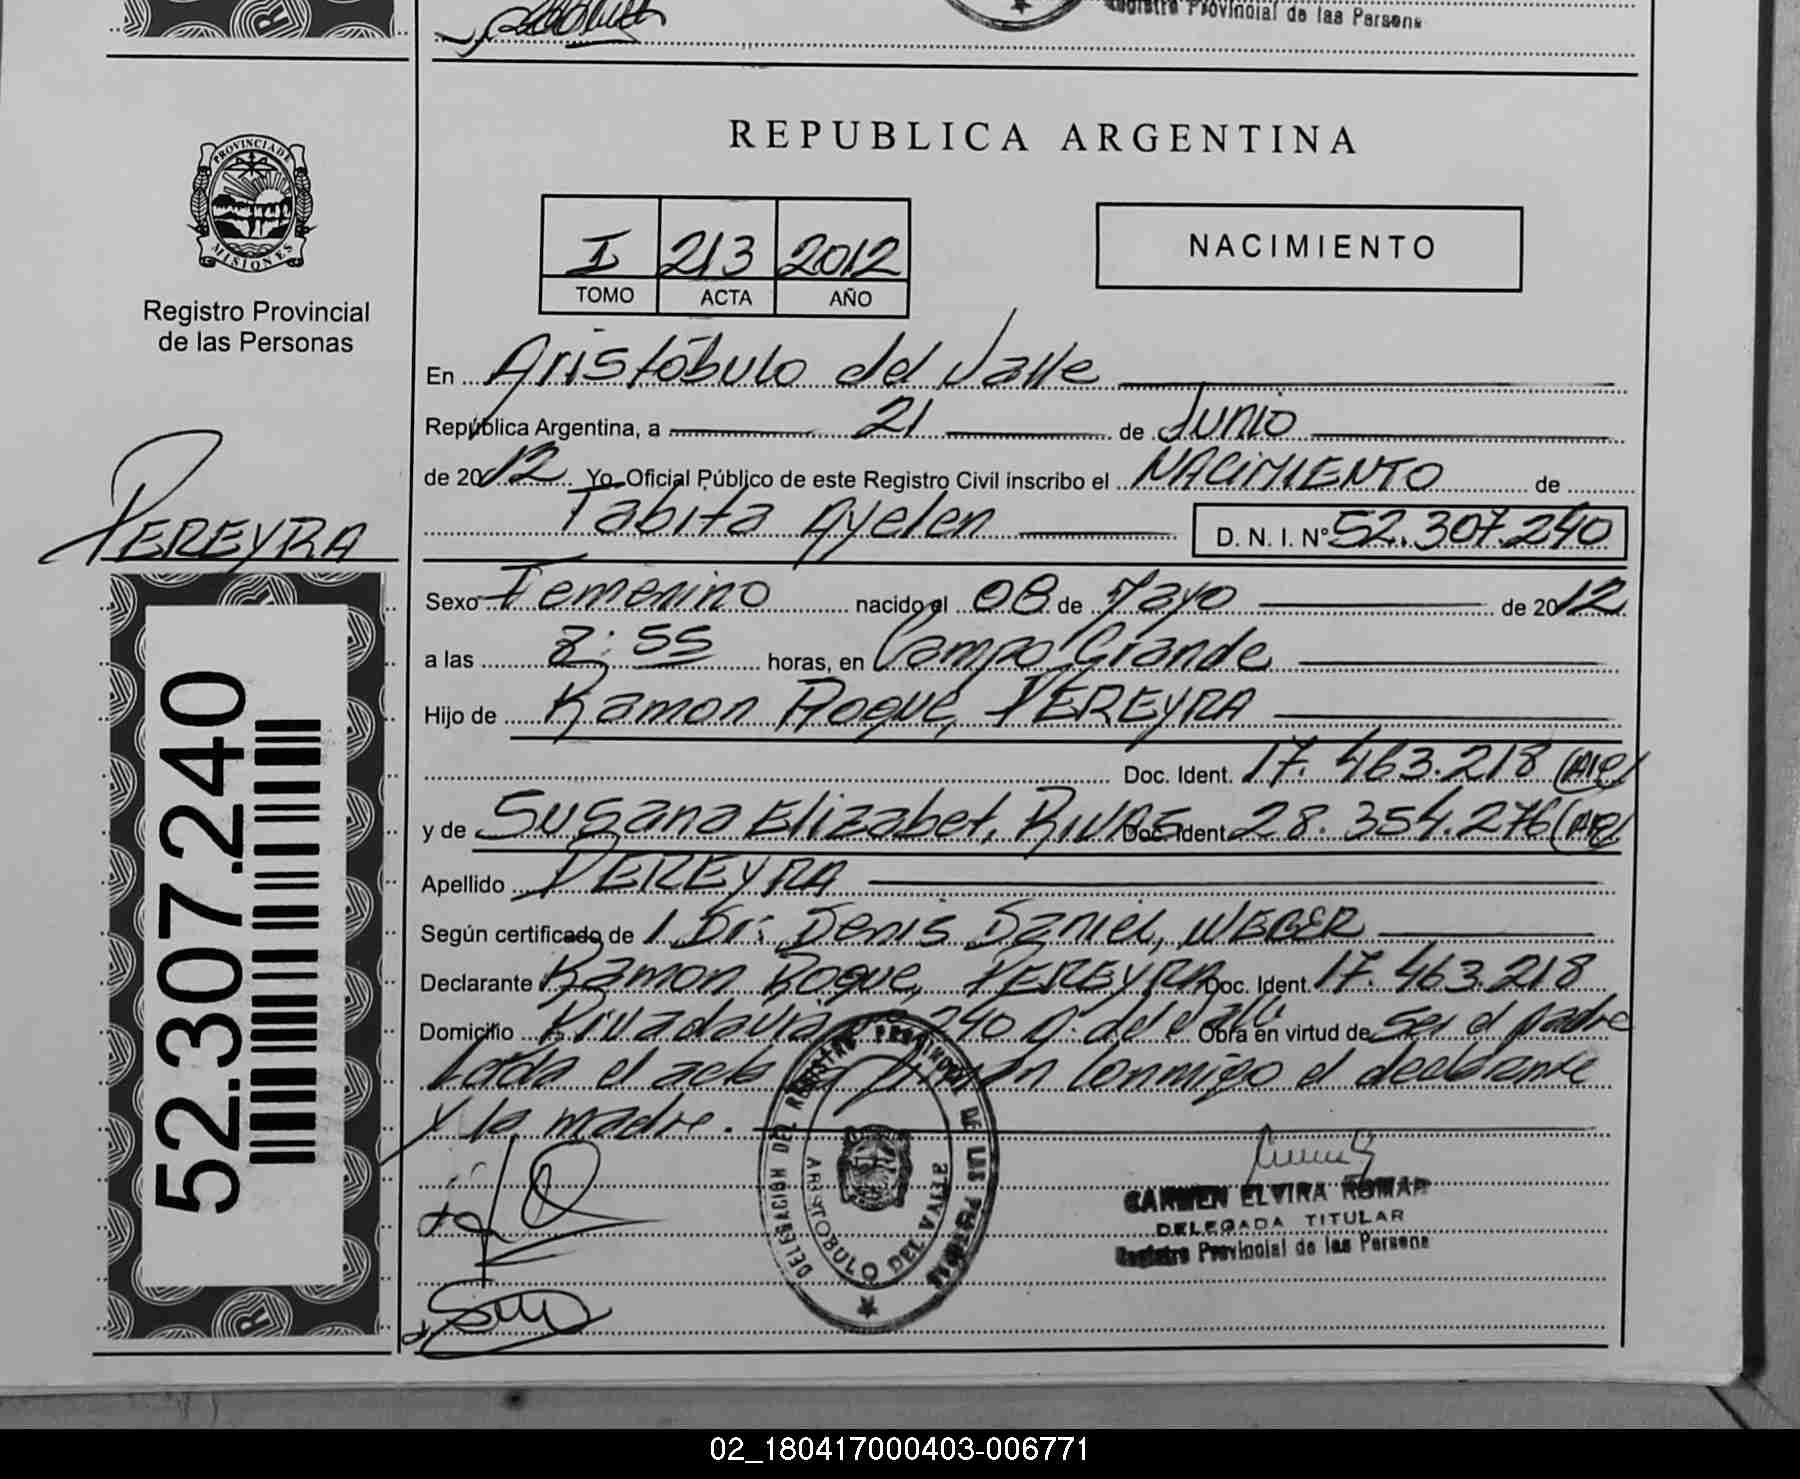 Registro Provincial de las Persona
REPUBLICA ARGENTINA
PROVINCIA DE
MISIONES
Registro Provincial
de las Personas
I 213 2012
TOMO ACTA AÑO
NACIMIENTO
PEREYRA
52.307.240
En Aristóbulo del Valle
República Argentina, a 21 de Junio
de 2012 Yo Oficial Público de este Registro Civil inscribo el NACIMIENTO de
Tabita Ayelen D. N. I. N° 52.307.240
Sexo Femenino nacido el 08 de Mayo de 2012
a las 8:55 horas, en Campo Grande
Hijo de Ramon Roque, PEREYRA
Doc. Ident. 17.463.218
y de Susana Elizabet, RIVAS Doc. Ident 28.354.276
Apellido PEREYRA
Según certificado de Dr: Denis Daniel, WEBER
Declarante Ramon Roque, PEREYRA Doc. Ident. 17.463.218
Domicilio Rivadavia 240 A. del Valle Obra en virtud de ser el padre
Leída el acta conmigo el declarante
y la madre.
DELEGACION DEL REGISTRO PROVINCIAL DE LAS PERSONAS
ARISTOBULO DEL VALLE
CARMEN ELVIRA ROMAR
DELEGADA TITULAR
Registro Provincial de las Persona
02_180417000403-006771